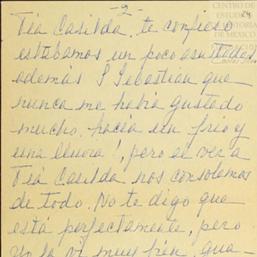 -2-
CENTRO DE
ESTUDIOS
DE MÉXICO
Tía Casilda, te confieso
estábamos un poco asustadas,
además S Sebastian que
nunca me había gustado
mucho, hacía un frío y
una lluvia!, pero el ver a
Tía Casilda nos consolamos
de todo. No te digo que
está perfectamente, pero
yo la vi muy bien, gua-